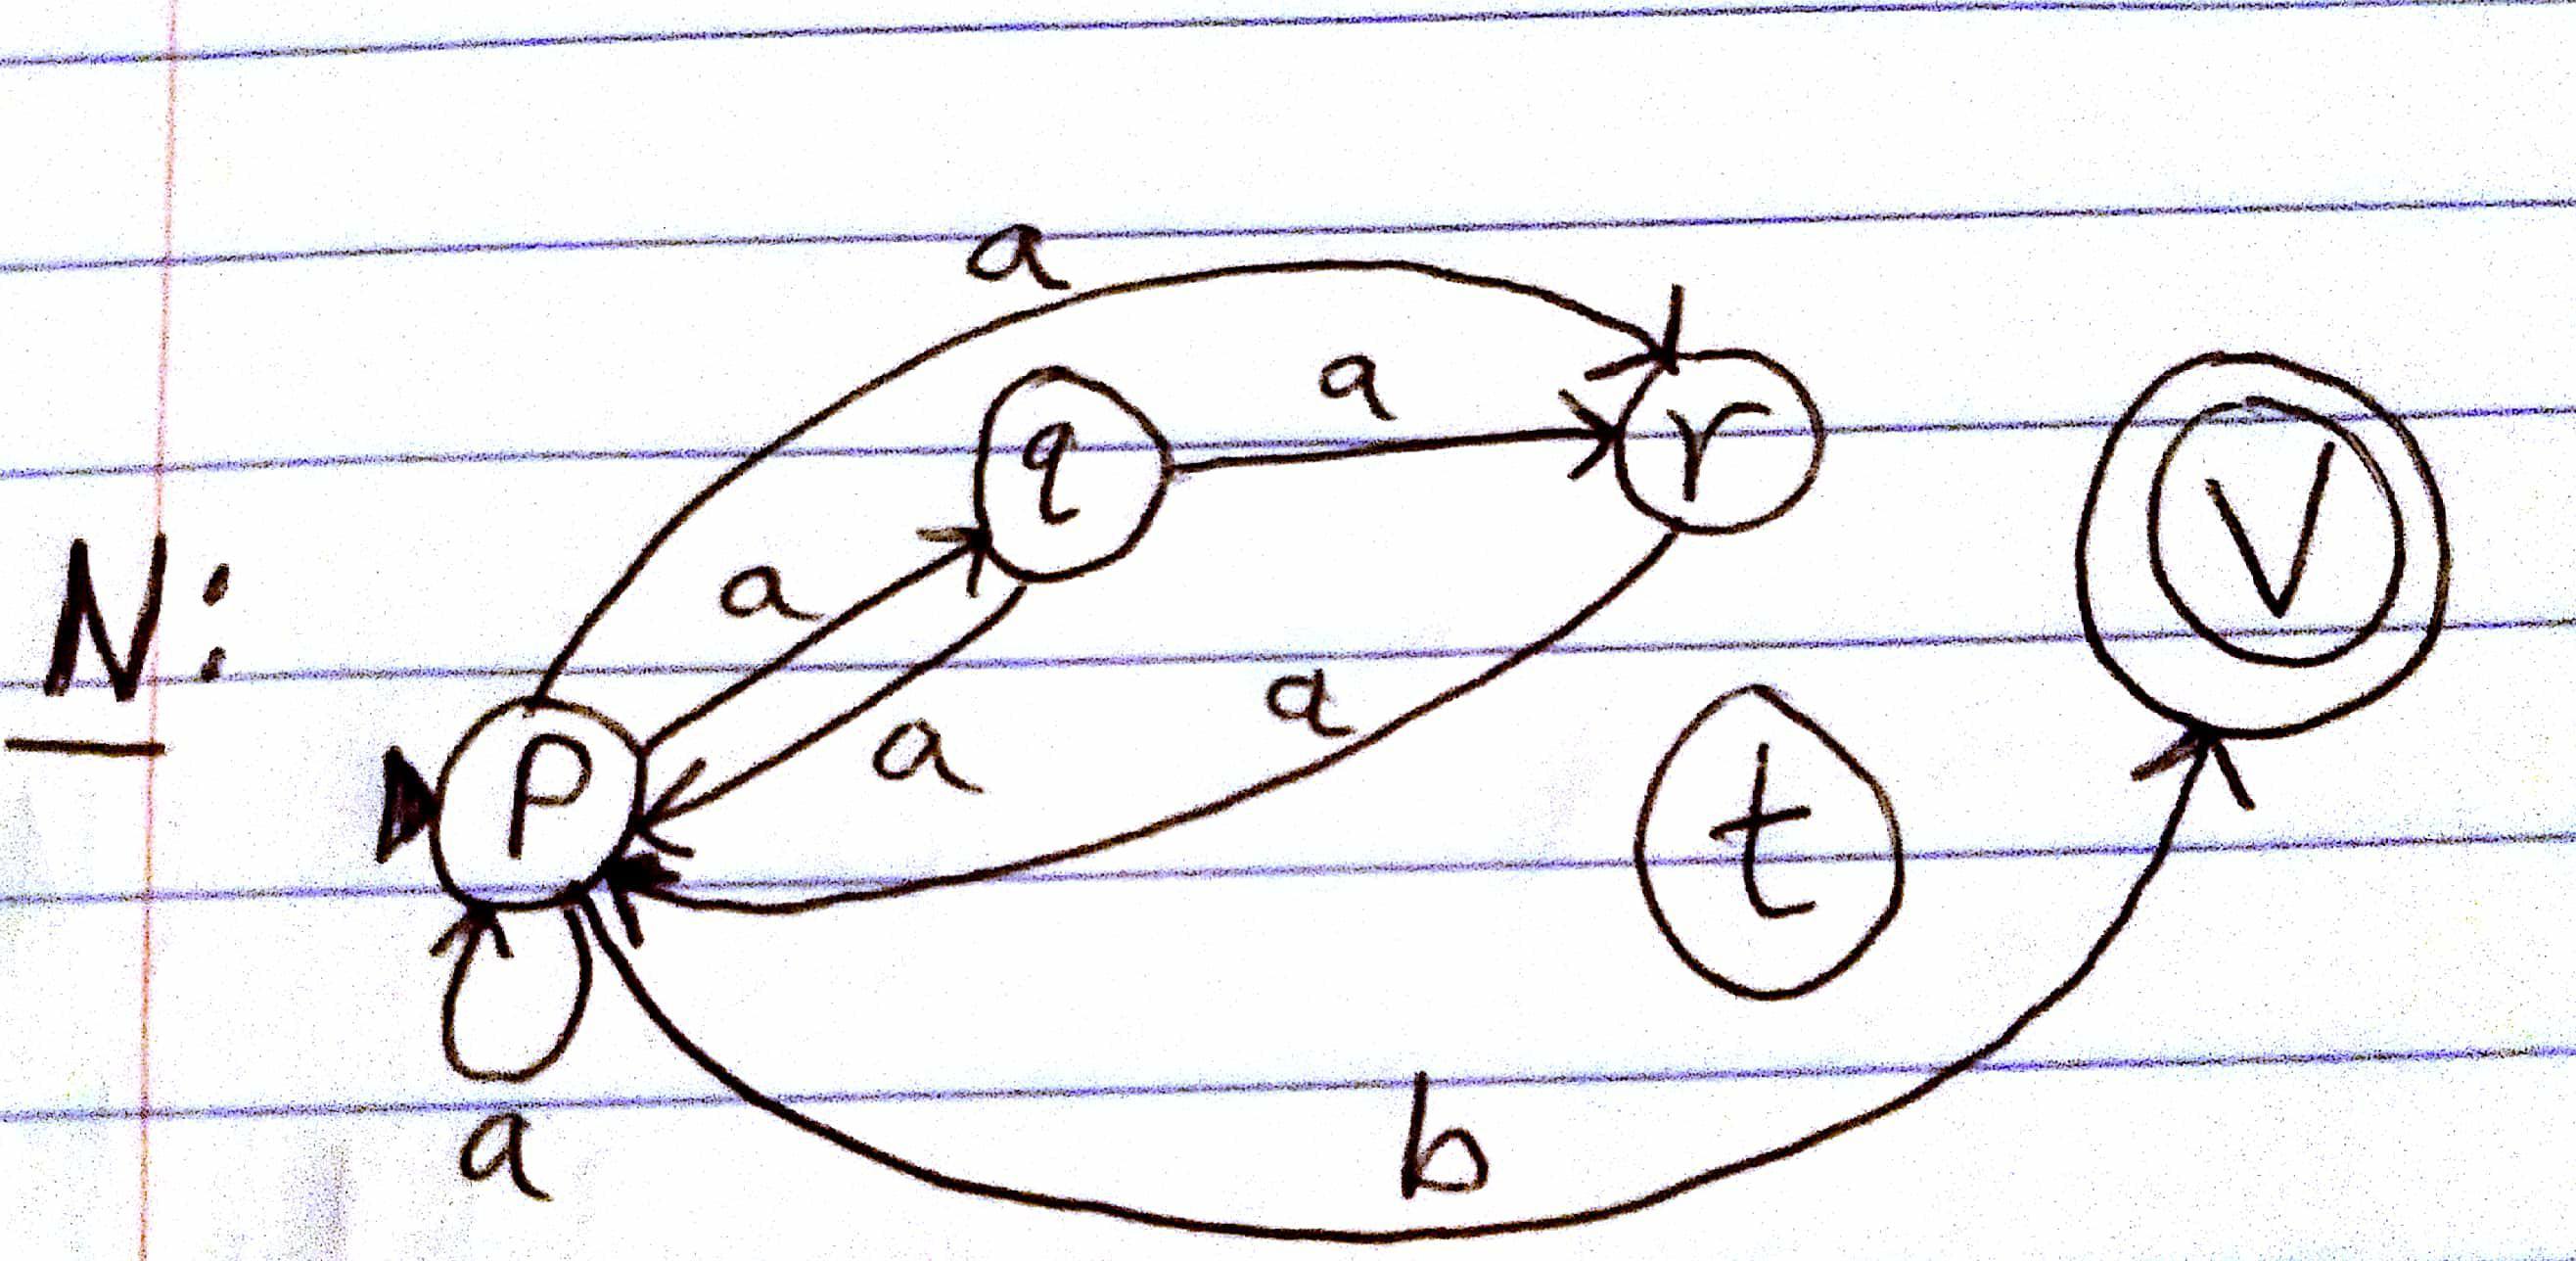 a
a
q
r
V
N:
a
a
a
P
t
a
b